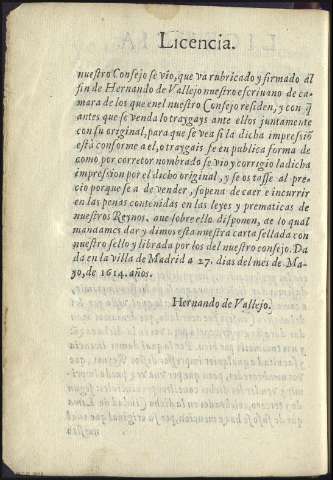 Licencia.
nuestro Consejo se vio, que va rubricado y firmado al
fin de Hernando de Vallejo nuestro escriuano de ca-
mara de los que en el nuestro Consejo residen, y con q̃
antes que se venda lo traygays ante ellos juntamente
con su original, para que se vea si la dicha impressiõ
està conforme a el, o traygais fe en publica forma de
como por corretor nombrado se vio y corrigio la dicha
impression por el dicho original, y se os tasse al pre-
cio porque se a de vender, so pena de caer e incurrir
en las penas contenidas en las leyes y prematicas de
nuestros Reynos, que sobre ello disponen, de lo qual
mandamos dar y dimos esta nuestra carta sellada con
nuestro sello y librada por los del nuestro consejo. Da
da en la villa de Madrid a 27. dias del mes de Ma-
yo, de 1614. años.
Hernando de Vallejo.